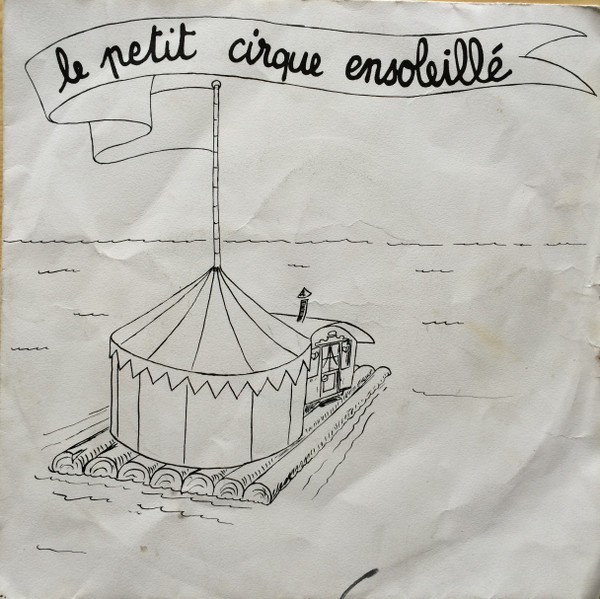 le petit cirque ensoleillé